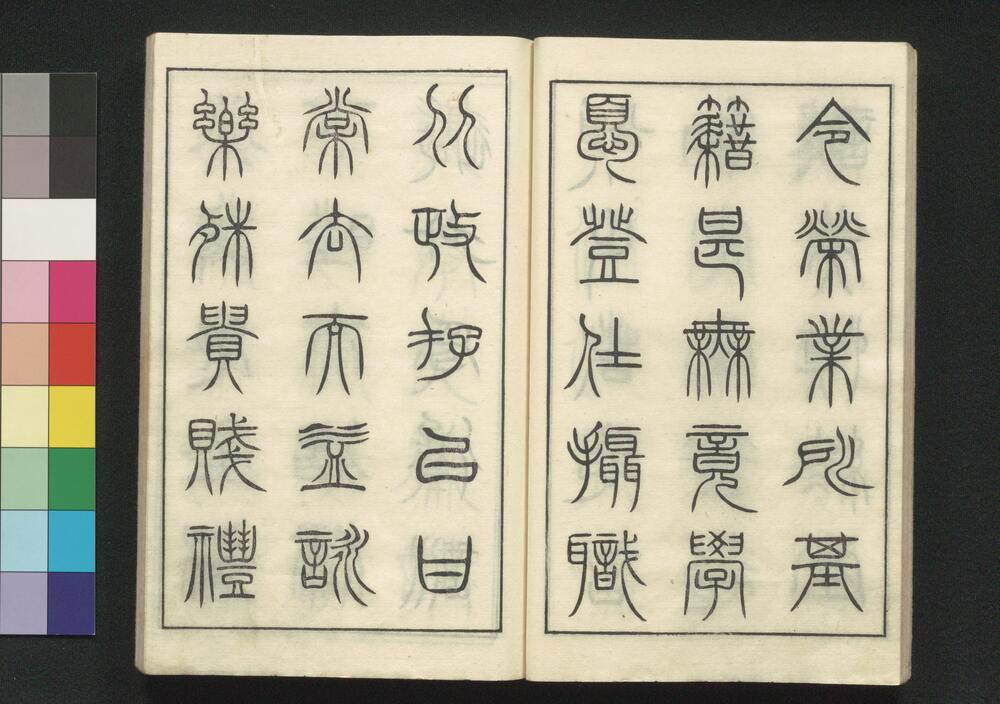 令榮業所基
籍甚無竟學
憂登仕攝職
从政存以甘
棠去而益詠
樂殊貴賤禮